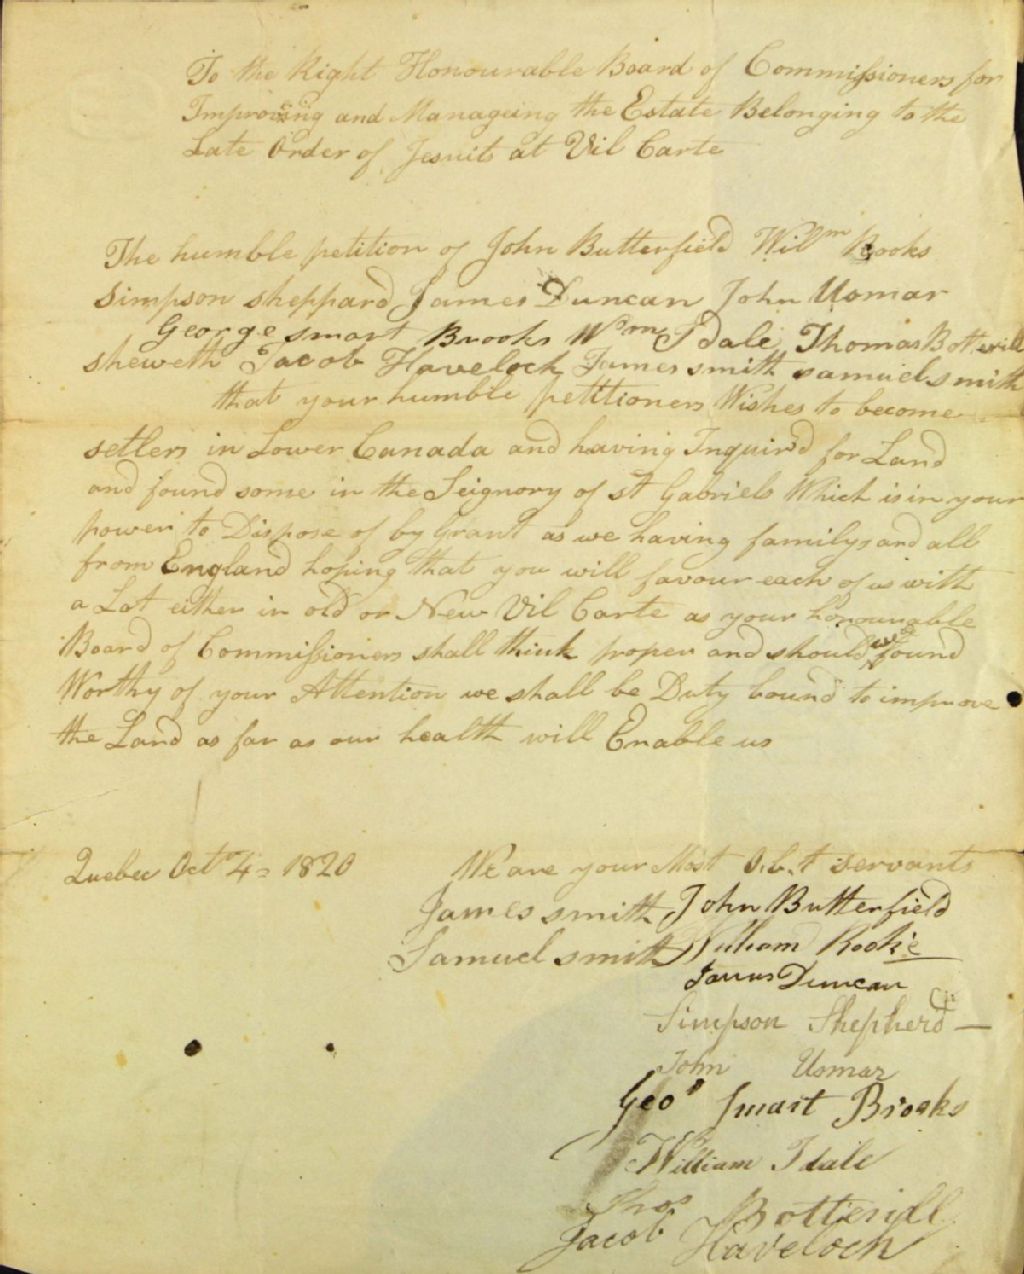 To the Right Honourable Board of Commissioners for
Improving and Manageing the Estate Belonging to the
Late Order of Jesuits at Vil Carte
The humble petition of John Butterfield Wilm Rooks
Simpson Sheppard James Duncan John Usmar
George smart Brooks Wm Idale Thomas Botterill
sheweth Jacob Havelock James smith samuel smith
that your humble petitioners Wishes to become
setlers in Lower Canada and having Inquir'd for Land
and found some in the Seignory of st Gabriels Which is in your
power to Dispose of by Grant as we having familys and all
from England hoping that you will favour each of us with
a Lot either in old or New Vil Carte as your honourable
Board of Commissioners shall think proper and should we found
Worthy of your Attention we shall be Duty bound to improve
the Land as far as our health will Enable us
Quebec Oct 4 = 1820
We are your Most Obt servants
James smith John Butterfield
Samuel smith William Rook
James Duncan
Simpson Shepherd —
John Usmar
Geo Smart Brooks
William Idale
Thos Botterill
Jacob Havelock